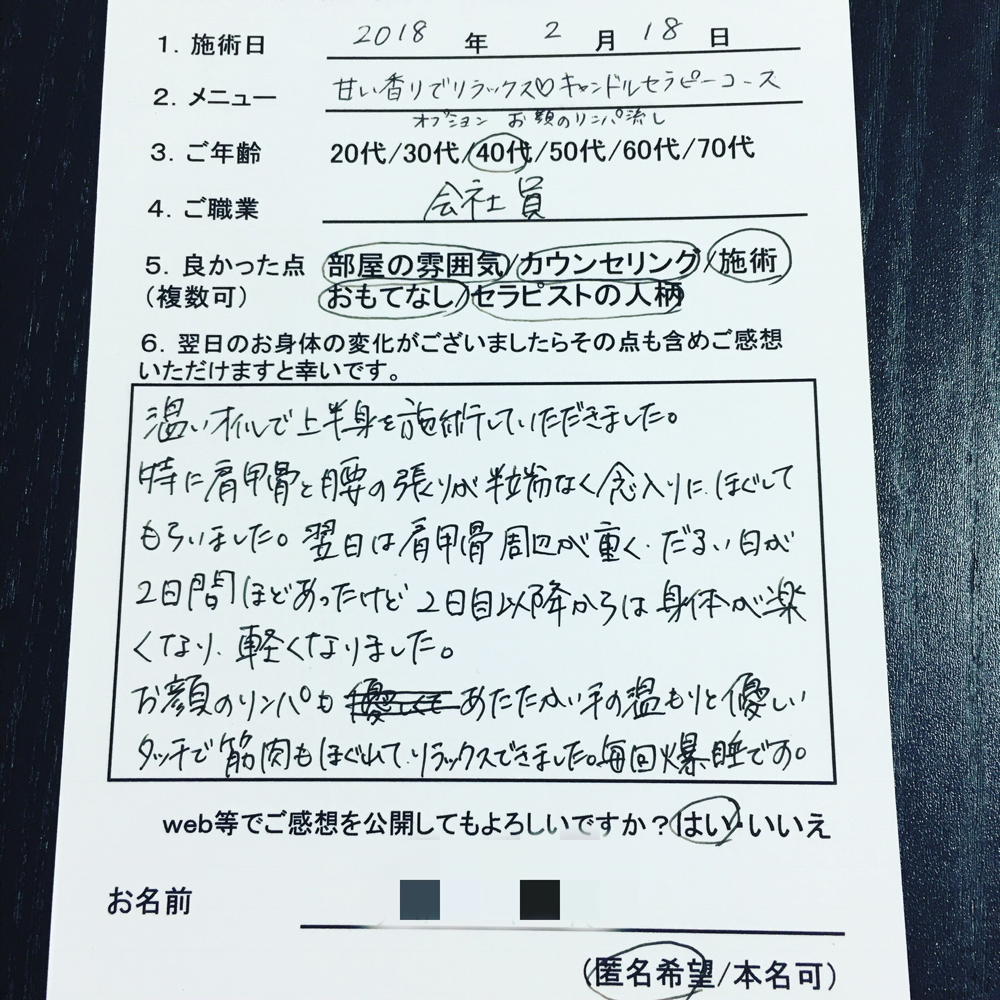 1. 施術日 2018 年 2 月 18 日
2. メニュー 甘い香りでリラックス♡キャンドルセラピーコース
オプション お顔のリンパ流し
3. ご年齢 20代/30代/40代/50代/60代/70代
4. ご職業 会社員
5. 良かった点 部屋の雰囲気/カウンセリング/施術
(複数可) おもてなし/セラピストの人柄
6. 翌日のお身体の変化がございましたらその点も含めご感想
いただけますと幸いです。
温いオイルで上半身を施術していただきました。
特に肩甲骨と腰の張りが半端なく念入りに、ほぐして
もらいました。翌日は肩甲骨周辺が重く、だるい日が
2日間ほどあったけど 2日目以降からは身体が楽
くなり、軽くなりました。
お顔のリンパも あたたかい手の温もりと優しい
タッチで筋肉もほぐれて、リラックスできました。毎回爆睡です。
web等でご感想を公開してもよろしいですか?はい・いいえ
お名前
(匿名希望/本名可)